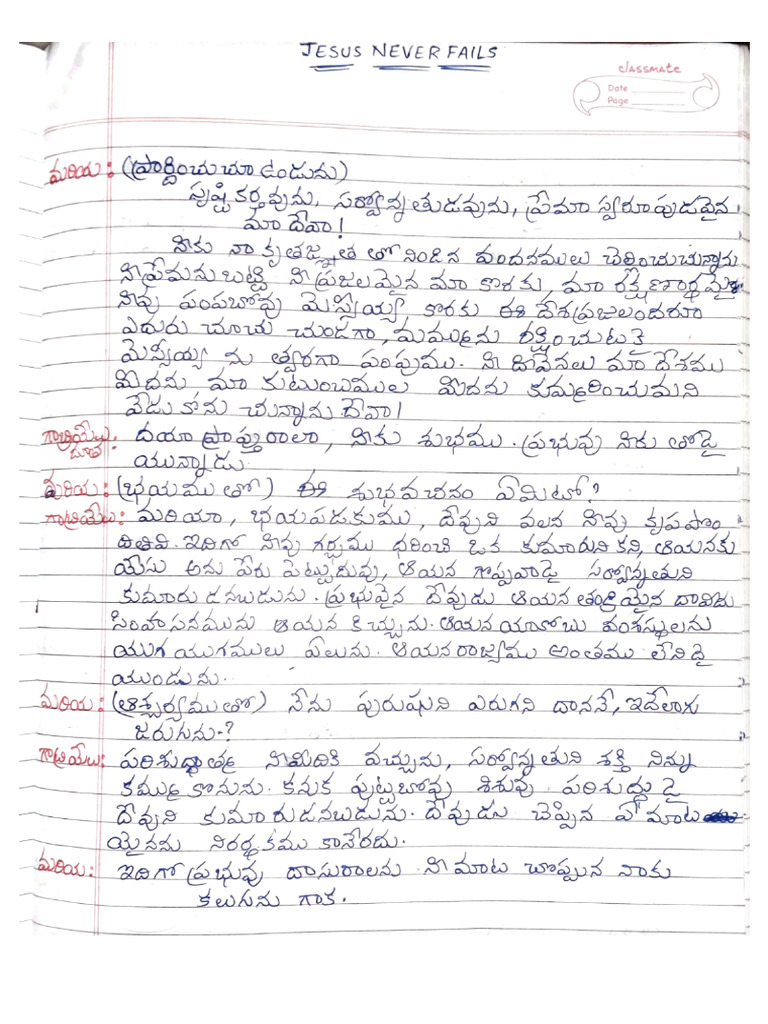 JESUS NEVER FAILS
classmate
Date
Page
మరియ: (ప్రార్థించుచూ ఉండును)
సృష్టికర్తవును, సర్వోన్నతుడవును, ప్రేమా స్వరూపుడవైన
మా దేవా!
నీకు నా కృతజ్ఞత తో నిండిన వందనములు చెల్లించుచున్నాను
నీ ప్రేమను బట్టి నీ ప్రజలమైన మా కొరకు, మా రక్షణార్థమై
నీవు పంపబోవు మెస్సియ్య కొరకు ఈ దేశప్రజలందరూ
ఎదురు చూచు చుండగా, మమ్మును రక్షించుటకై
మెస్సియ్య ను త్వరగా పంపుము. నీ దీవెనలు మా దేశము
మీదను మా కుటుంబముల మీదను కుమ్మరించుమని
వేడు కొను చున్నాను దేవా!
గాబ్రియేలు దూత: దయా ప్రాప్తురాలా, నీకు శుభము. ప్రభువు నీకు తోడై
యున్నాడు.
మరియ: (భయము తో) ఈ శుభవచనం ఏమిటో?
గాబ్రియేలు: మరియా, భయపడకుము, దేవుని వలన నీవు కృపపొం
దితివి. ఇదిగో నీవు గర్భము ధరించి ఒక కుమారుని కని, ఆయనకు
యేసు అను పేరు పెట్టుదువు, ఆయన గొప్పవాడై సర్వోన్నతుని
కుమారు డనబడును. ప్రభువైన దేవుడు ఆయన తండ్రియైన దావీదు
సింహాసనమును ఆయన కిచ్చును. ఆయన యాకోబు వంశస్థులను
యుగ యుగములు ఏలును. ఆయన రాజ్యము అంతము లేనిదై
యుండును.
మరియ: (ఆశ్చర్యముతో) నేను పురుషుని ఎరుగని దాననే, ఇదేలాగు
జరుగును?
గాబ్రియేలు: పరిశుద్ధాత్మ నీమీదికి వచ్చును, సర్వోన్నతుని శక్తి నిన్ను
కమ్ము కొనును. కనుక పుట్టబోవు శిశువు పరిశుద్ధుడై
దేవుని కుమారుడనబడును. దేవుడు చెప్పిన ఏ మాట
యైనను నిరర్థకము కానేరదు.
మరియ: ఇదిగో ప్రభువు దాసురాలను నీ మాట చొప్పున నాకు
కలుగును గాక.